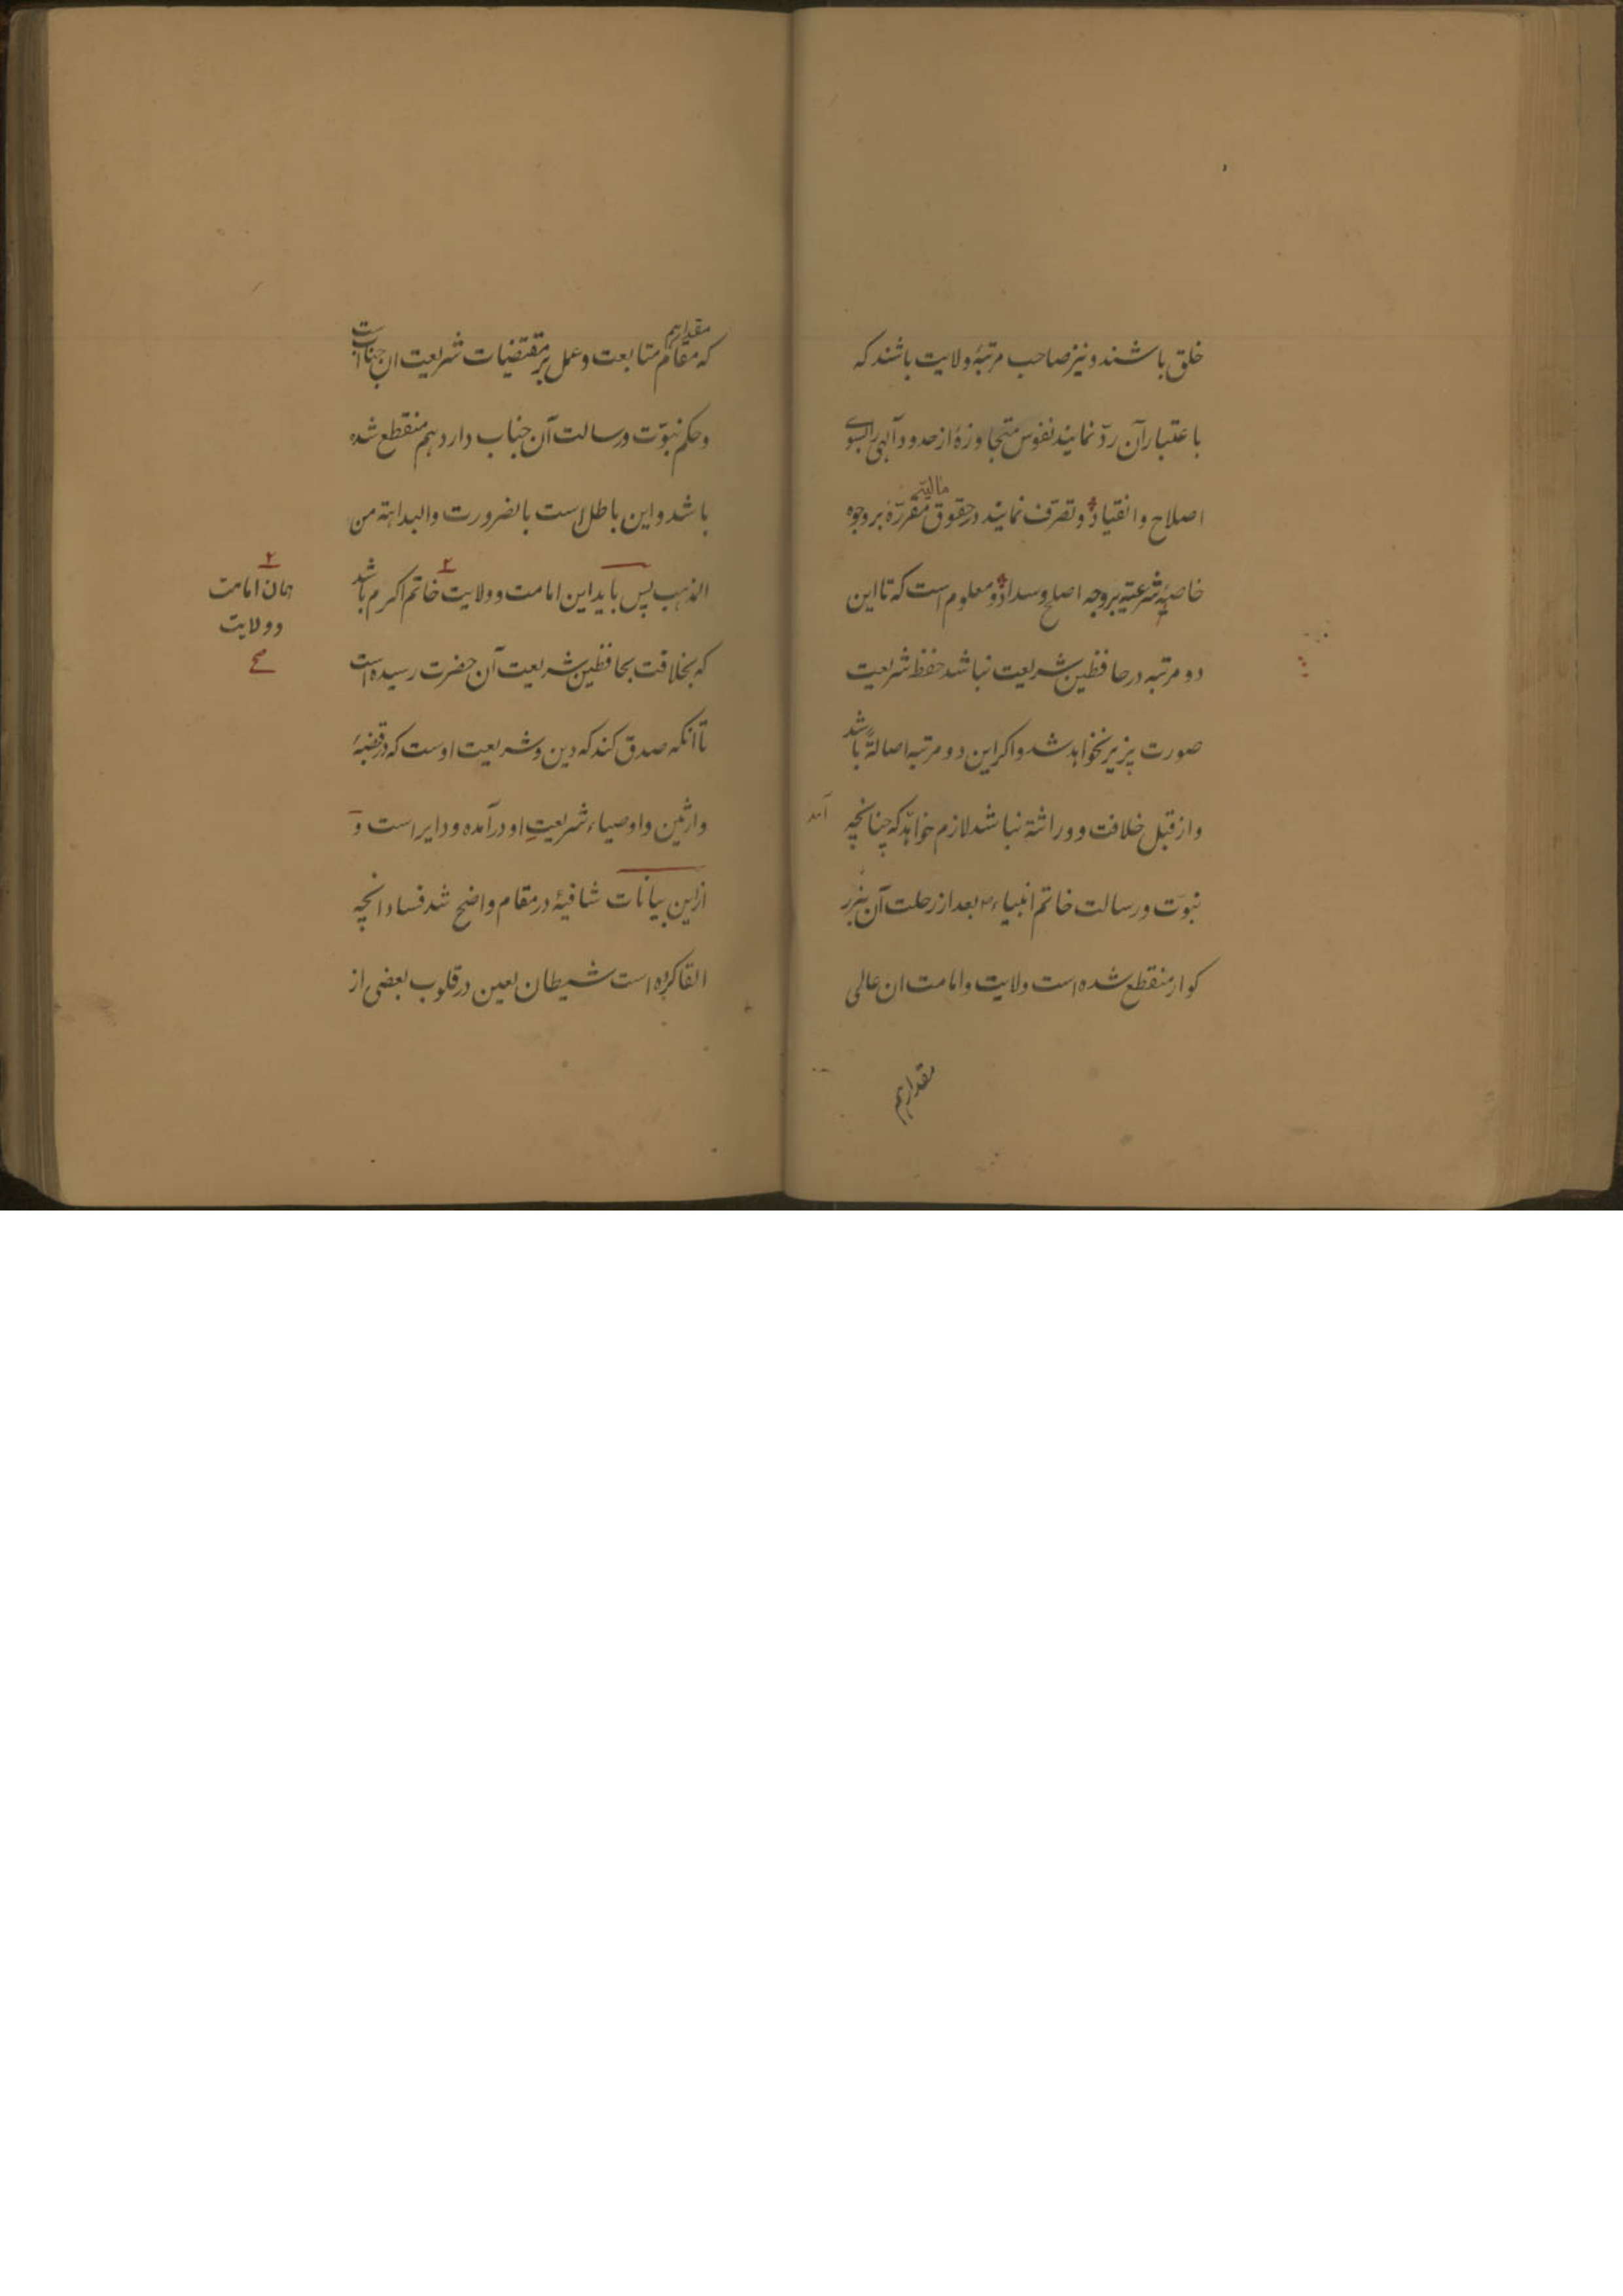 خلق باشند و نیز صاحب مرتبهٔ ولایت باشند که
باعتبار آن ردّ نمایند نفوس متجاوزهٔ از حدود آلهی را بسوی
اصلاح و انقیاد و تصرف نمایند در حقوق مالیّه مقررّهٔ بر وجوه
خاصیهٔ شرعیّه بر وجه اصلح و سداد و معلوم است که تا این
دو مرتبه در حافظین شریعت نباشد حفظ شریعت
صورت پزیر نخواهد شد و اکر این دو مرتبه اصالةً باشد
و از قبل خلافت و وراثة نباشد لازم خواهد آمد که چنانچه
نبوّت و رسالت خاتم انبیاء ص بعد از رحلت آن بزر
کوار منقطع شده است ولایت و امامت ان عالی
مقدارهم
مقدارهم
که مقام متابعت و عمل بر مقتضیات شریعت ان جناب است
و حکم نبوّت و رسالت آن جناب دارد هم منقطع شده
باشد و این باطل است بالضرورت والبداهته من
المذهب پس باید این امامت و ولایت خاتم اکرم باشد
همان امامت
و ولایت
صح
که بخلافت بحافظین شریعت آن حضرت رسیده است
تا انکه صدق کند که دین و شریعت اوست که در قبضهٔ
وارثین و اوصیاء شریعت او در آمده و دایر است و
از این بیانات شافیهٔ در مقام واضح شد فساد انچه
القا کرده است شیطان لعین در قلوب بعضی از